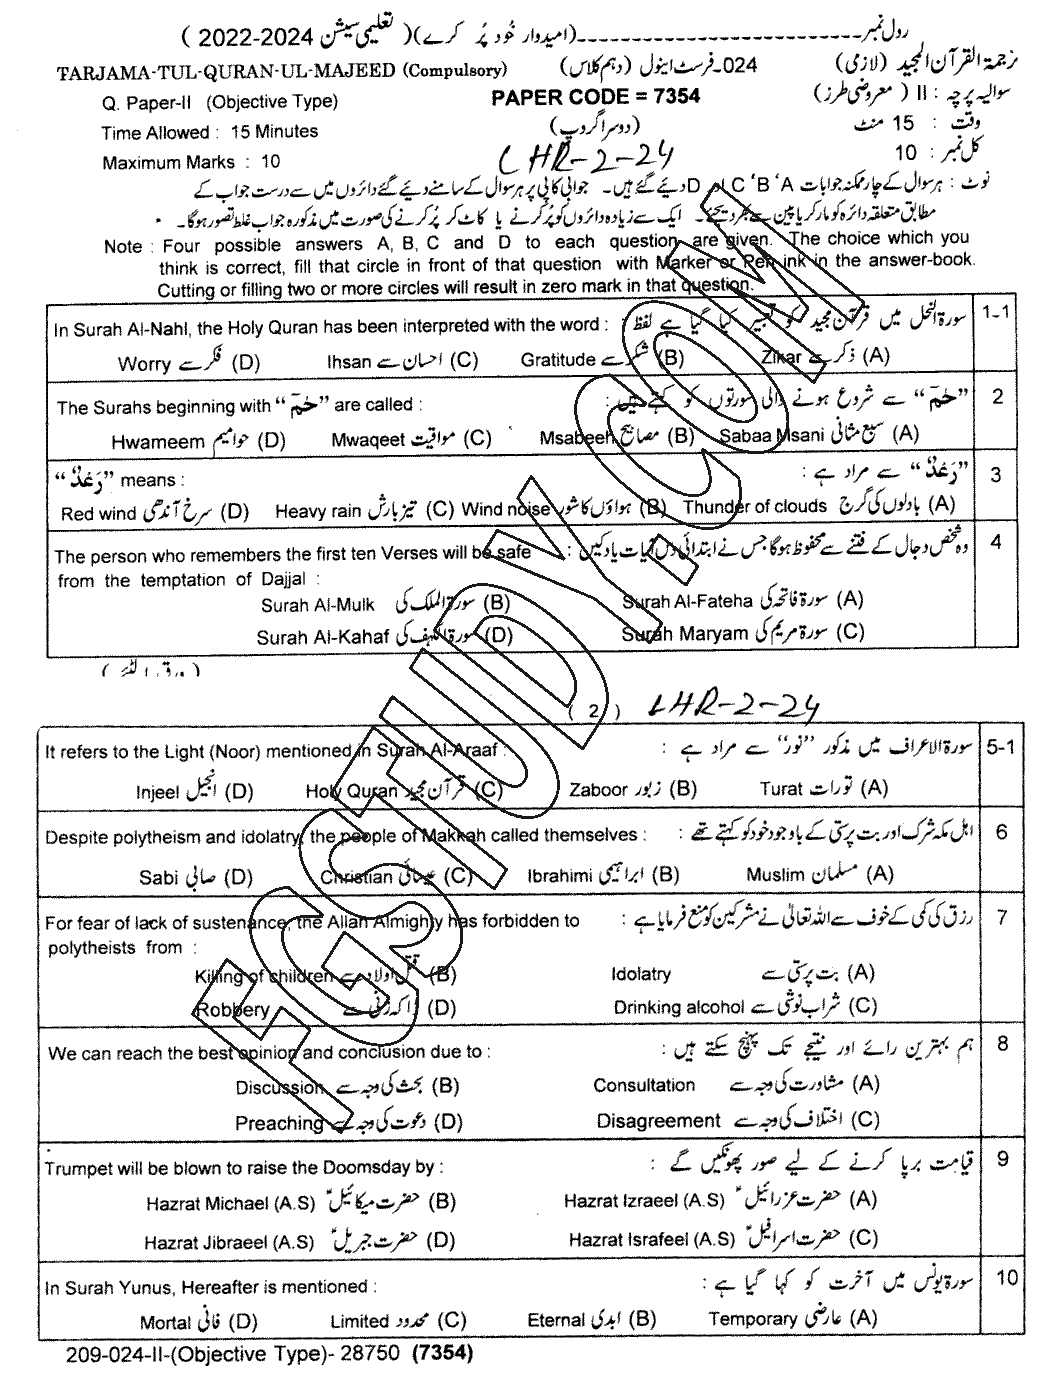 رول نمبر---------------------------(امیدوار خود پُر کرے)( تعلیمی سیشن 2024-2022 )
TARJAMA-TUL-QURAN-UL-MAJEED (Compulsory) 024-فرسٹ اینول (دہم کلاس) ترجمۃ القرآن المجید (لازمی)
Q. Paper-II (Objective Type) PAPER CODE = 7354 سوالیہ پرچہ : II ( معروضی طرز)
Time Allowed : 15 Minutes (دوسرا گروپ) وقت : 15 منٹ
Maximum Marks : 10 LHR-2-24 کل نمبر : 10
نوٹ : ہر سوال کے چار ممکنہ جوابات A' B' C اور D دیئے گئے ہیں۔ جوابی کاپی پر ہر سوال کے سامنے دیئے گئے دائروں میں سے درست جواب کے
مطابق متعلقہ دائرہ کو مارکر یا پین سے بھر دیجئے۔ ایک سے زیادہ دائروں کو پُر کرنے یا کاٹ کر پُر کرنے کی صورت میں مذکورہ جواب غلط تصور ہوگا۔
Note : Four possible answers A, B, C and D to each question are given. The choice which you
think is correct, fill that circle in front of that question with Marker or Pen ink in the answer-book.
Cutting or filling two or more circles will result in zero mark in that question.
In Surah Al-Nahl, the Holy Quran has been interpreted with the word : سورۃ النحل میں قرآن مجید کو تعبیر کیا گیا ہے لفظ : 1-1
Worry فکر سے (D) Ihsan احسان سے (C) Gratitude شکر سے (B) Zikar ذکر سے (A)
The Surahs beginning with “ حٰمٓ ” are called : “حٰمٓ ” سے شروع ہونے والی سورتوں کو کہتے ہیں : 2
Hwameem حوامیم (D) Mwaqeet مواقیت (C) Msabeeh مصابیح (B) Sabaa Msani سبع مثانی (A)
“ رَعْدٌ ” means : “رَعْدٌ ” سے مراد ہے : 3
Red wind سرخ آندھی (D) Heavy rain تیز بارش (C) Wind noise ہواؤں کا شور (B) Thunder of clouds بادلوں کی گرج (A)
The person who remembers the first ten Verses will be safe وہ شخص دجال کے فتنے سے محفوظ ہوگا جس نے ابتدائی دس آیات یاد کیں : 4
from the temptation of Dajjal :
Surah Al-Mulk سورۃ الملک کی (B) Surah Al-Fateha سورۃ فاتحہ کی (A)
Surah Al-Kahaf سورۃ الکہف کی (D) Surah Maryam سورۃ مریم کی (C)
( ورق الٹئے )
( 2 ) LHR-2-24
It refers to the Light (Noor) mentioned in Surah Al-Araaf : سورۃ الاعراف میں مذکور “نور” سے مراد ہے : 5-1
Injeel انجیل (D) Holy Quran قرآن مجید (C) Zaboor زبور (B) Turat تورات (A)
Despite polytheism and idolatry, the people of Makkah called themselves : اہل مکہ شرک اور بت پرستی کے باوجود خود کو کہتے تھے : 6
Sabi صابی (D) Christian عیسائی (C) Ibrahimi ابراہیمی (B) Muslim مسلمان (A)
For fear of lack of sustenance, the Allah Almighty has forbidden to رزق کی کمی کے خوف سے اللہ تعالیٰ نے مشرکین کو منع فرمایا ہے : 7
polytheists from :
Killing of children قتل اولاد سے (B) Idolatry بت پرستی سے (A)
Robbery ڈاکہ زنی سے (D) Drinking alcohol شراب نوشی سے (C)
We can reach the best opinion and conclusion due to : ہم بہترین رائے اور نتیجے تک پہنچ سکتے ہیں : 8
Discussion بحث کی وجہ سے (B) Consultation مشاورت کی وجہ سے (A)
Preaching دعوت کی وجہ سے (D) Disagreement اختلاف کی وجہ سے (C)
Trumpet will be blown to raise the Doomsday by : قیامت برپا کرنے کے لیے صور پھونکیں گے : 9
Hazrat Michael (A.S) حضرت میکائیلؑ (B) Hazrat Izraeel (A.S) حضرت عزرائیلؑ (A)
Hazrat Jibraeel (A.S) حضرت جبریلؑ (D) Hazrat Israfeel (A.S) حضرت اسرافیلؑ (C)
In Surah Yunus, Hereafter is mentioned : سورۃ یونس میں آخرت کو کہا گیا ہے : 10
Mortal فانی (D) Limited محدود (C) Eternal ابدی (B) Temporary عارضی (A)
209-024-II-(Objective Type)- 28750 (7354)
FGSTUDY.COM